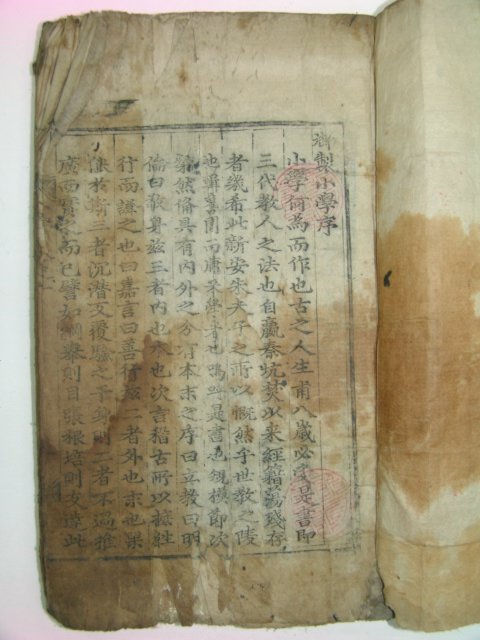 御製小學序
小學何為而作也古之人生甫八歲必受是書即
三代教人之法也自嬴秦坑焚以來經籍蕩殘存
者幾希此新安朱夫子之所以慨然乎世教之陵
弛輯舊聞而牖來學者也嗚呼是書也規模節次
粲然備具有內外之分有本末之序曰立教曰明
倫曰敬身玆三者內也本也次言稽古所以摭往
行而證之也曰嘉言曰善行玆二者外也末也果
能於斯三者沉潛反覆驗之于身則二者不過推
廣而實之而已譬如綱舉則目張根培則支達此